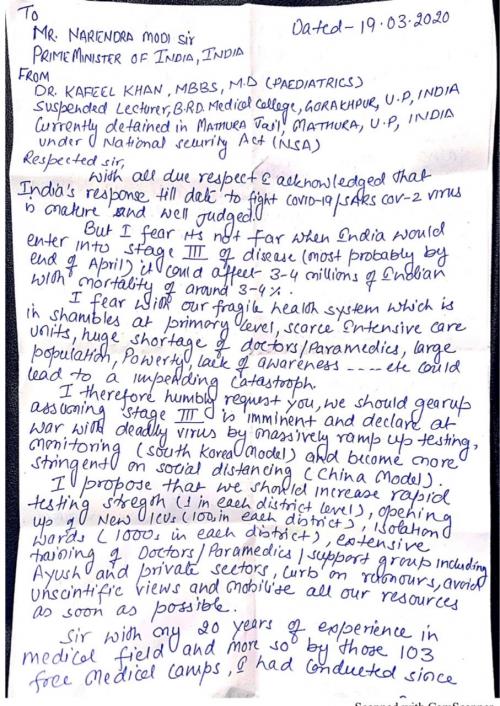 To
Dated - 19.03.2020
MR. NARENDRA MODI Sir
PRIME MINISTER OF INDIA, INDIA
FROM
DR. KAFEEL KHAN, MBBS, M.D (PAEDIATRICS)
Suspended Lecturer, B.R.D. Medical College, GORAKHPUR, U.P, INDIA
Currently detained in MATHURA Jail, MATHURA, U.P, INDIA
under National security Act (NSA)
Respected sir,
with all due respect & acknowledged that
India's response till date to fight COVID-19/SARS COV-2 virus
is mature and well judged.
But I fear its not far when India would
enter into stage III of disease (most probably by
end of April) it could affect 3-4 millions of Indian
with mortality of around 3-4%.
I fear with our fragile health system which is
in shambles at primary level, scarce Intensive care
units, huge shortage of doctors/Paramedics, large
population, Powerty, lack of awareness ---- etc could
lead to a impending Catastroph.
I therefore humbly request you, we should gearup
assuming stage III is imminent and declare at
war with deadly virus by massively ramp up testing,
monitoring (South Korea Model) and become more
stringent on social distancing (China Model).
I propose that we should increase rapid
testing stregth (1 in each district level), opening
up of New ICUs (100 in each district), isolation
wards (1000s in each district), extensive
training of Doctors/Paramedics/support group including
Ayush and private sectors, curb on rumours, avoid
unscientific views and mobilise all our resources
as soon as possible.
Sir with my 20 years of experience in
medical field and more so by those 103
free medical camps, I had conducted since
Scanned with CamScanner